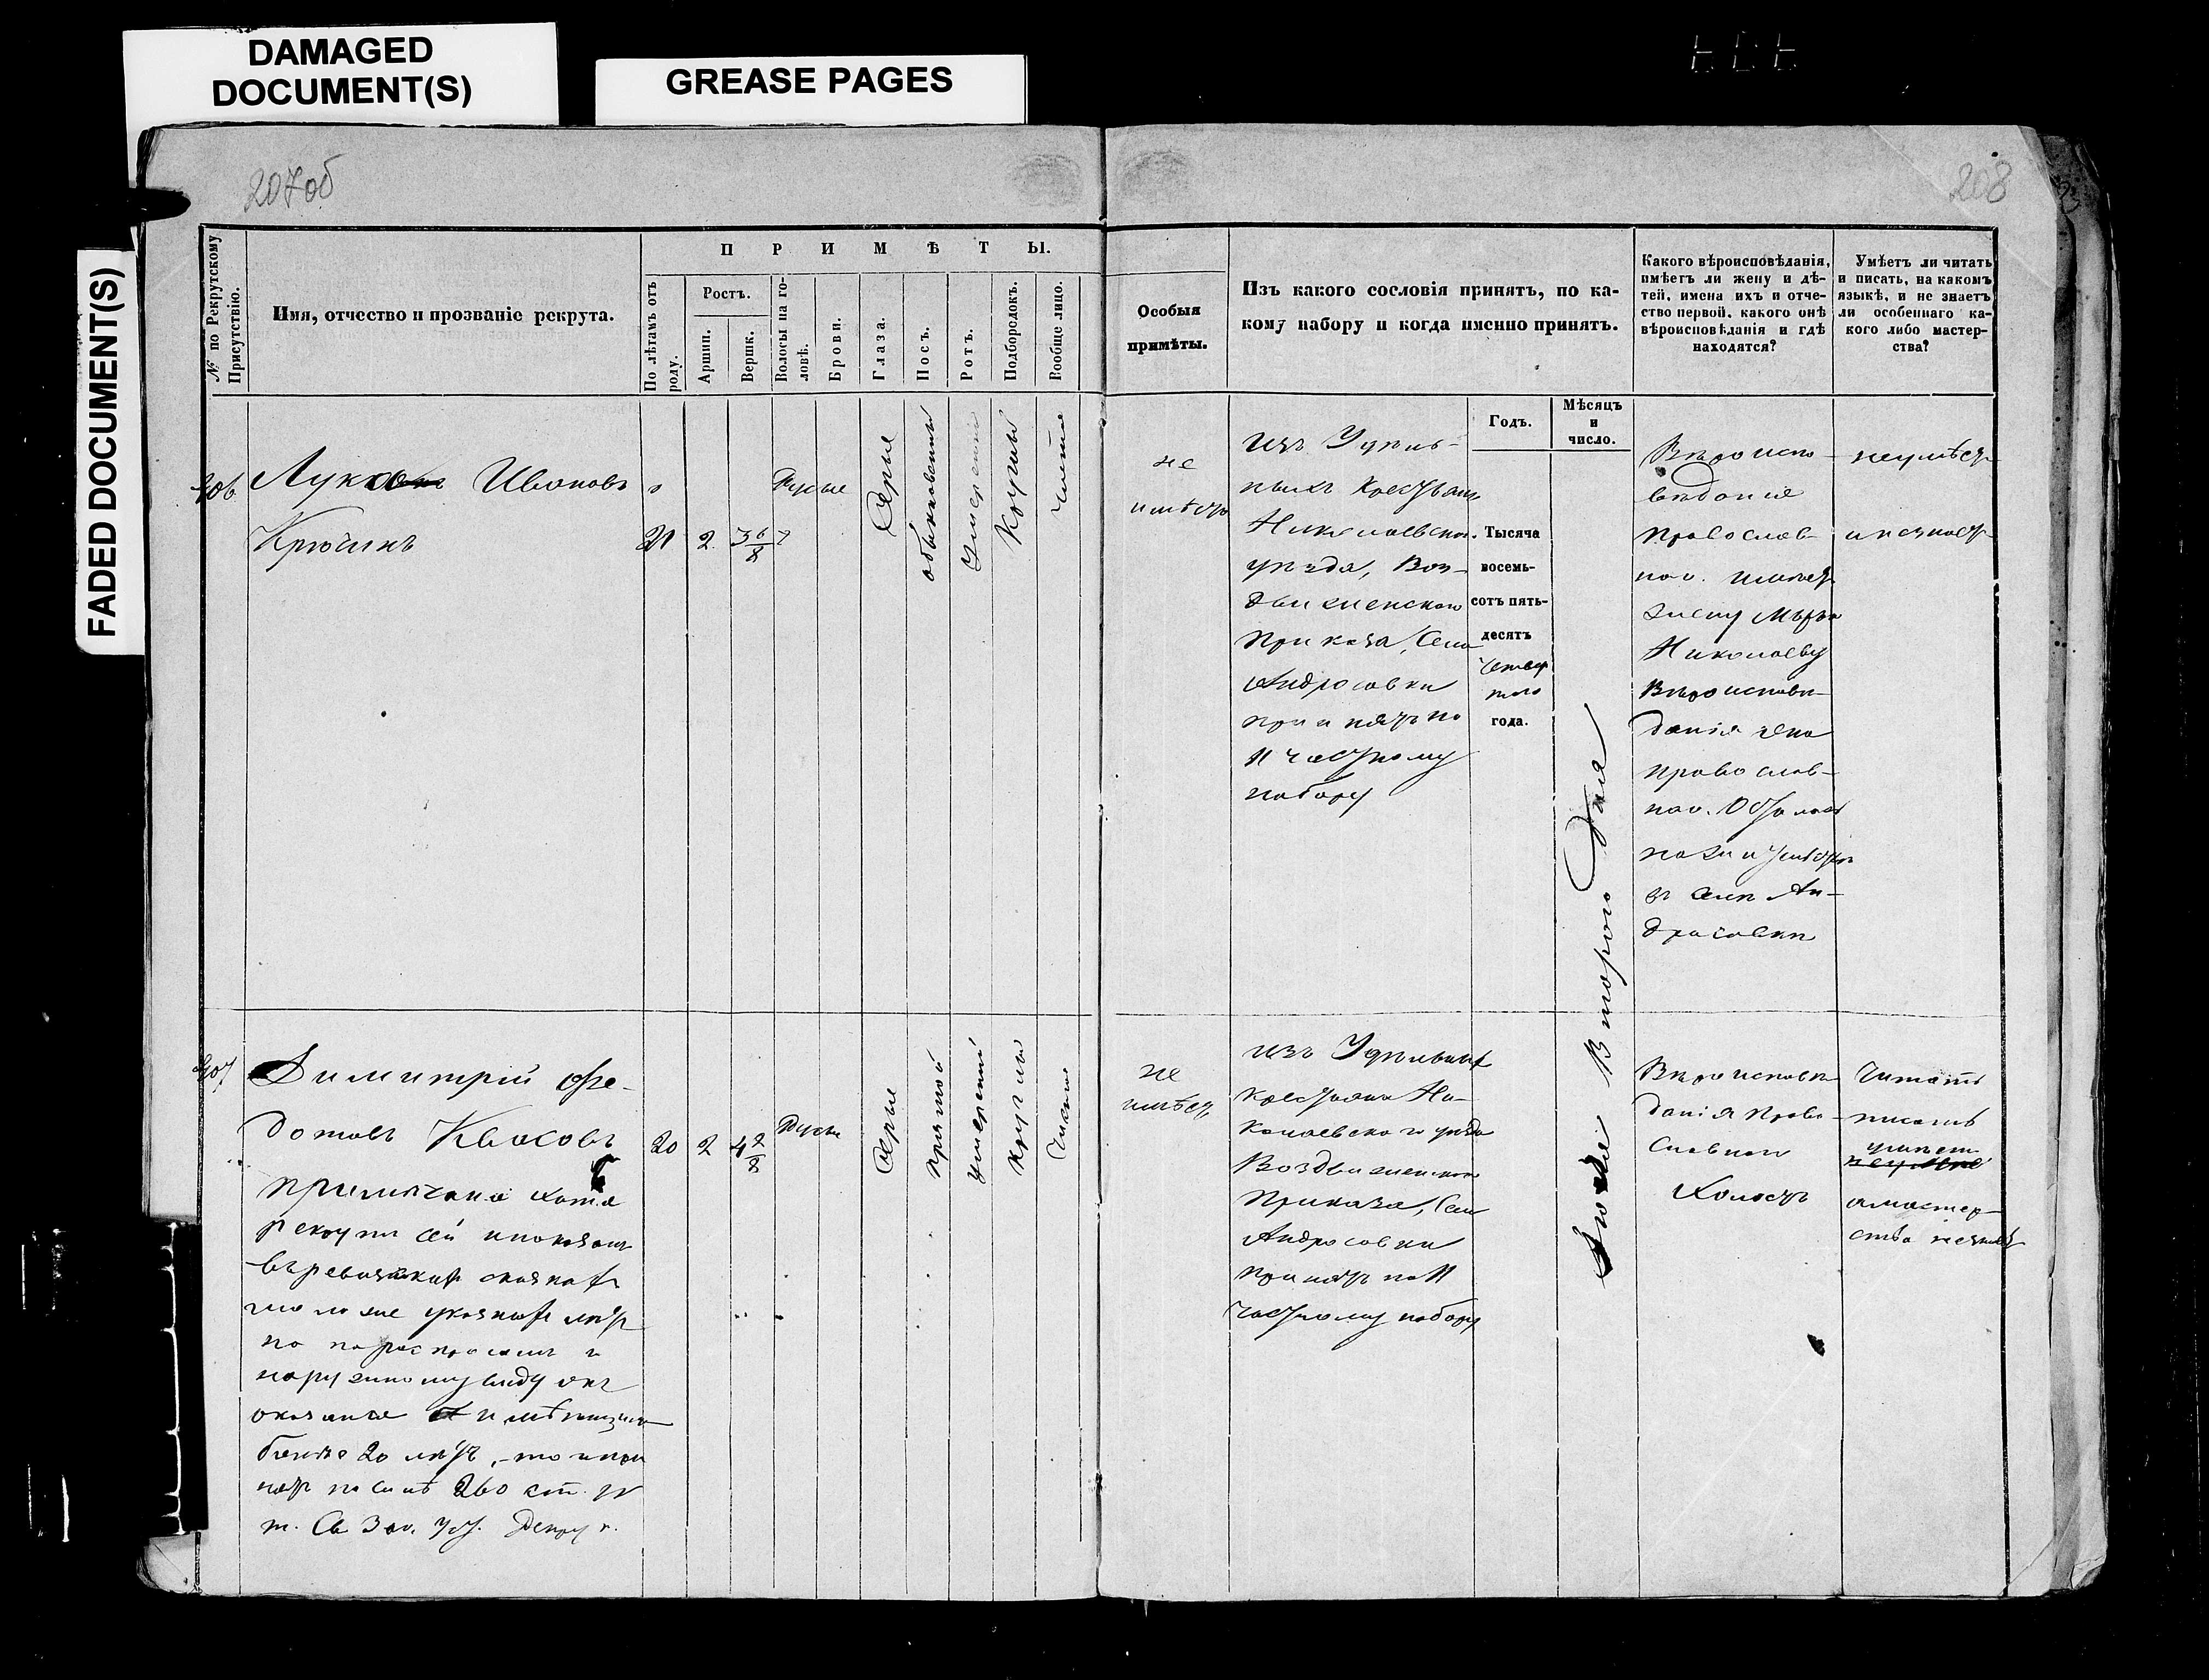 DAMAGED
DOCUMENT(S)
GREASE PAGES
FADED DOCUMENT(S)
207об
208
№ по Рекрутскому
Присутствію.
Имя, отчество и прозваніе рекрута.
ПРИМѢТЫ.
По лѣтамъ отъ
роду.
Ростъ.
Аршин.
Вершк.
Волосы на го-
ловѣ.
Брови.
Глаза.
Носъ.
Ротъ.
Подбородокъ.
Вообще лицо.
Особыя
примѣты.
Изъ какого сословія принятъ, по ка-
кому набору и когда именно принятъ.
Какого вѣроисповѣданія,
имѣетъ ли жену и дѣ-
тей, имена ихъ и отче-
ство первой, какого онѣ
вѣроисповѣданія и гдѣ
находятся?
Умѣетъ ли читать
и писать, на какомъ
языкѣ, и не знаетъ
ли особеннаго ка-
кого либо мастер-
ства?
Годъ.
Мѣсяцъ
и
число.
406
Ивановъ
Крючинъ
21
2
3 6/8
Русые
Сѣрые
обыкновенный
умѣренный
Круглый
чистое
не
имѣетъ
изъ Удѣль-
ныхъ Крестьянъ
Николаевскаго
уѣзда, Воз-
движенскаго
Приказа, Села
Андросовки
принятъ по
11 частному
набору
Тысяча
восемь-
сотъ пять-
десятъ
четвер
таго
года.
Іюля Втораго Дня
Вѣроиспо-
вѣданія
православ-
наго. имѣетъ
жену
Николаеву
Вѣроисповѣ-
данія она
православ-
наго.
въ селѣ Ан-
дросовкѣ
неумѣетъ
и незнаетъ
407
Димитрій Фе-
дотовъ Квасовъ
20
2
4 2/8
Русые
Сѣрые
прямой
умѣренный
круглый
Чистое
примѣчаніе хотя
рекрутъ сей и показанъ
въ ревизскихъ сказкахъ
наружному виду онъ
болѣе 20 лѣтъ, то и при
нятъ по силѣ 260 ст. IV
т. Св. Зак. Уст. Рекрут.
не
имѣетъ
изъ Удѣльныхъ
крестьянъ Ни-
колаевскаго уѣзда
Воздвиженскаго
Приказа, Села
Андросовки
принятъ по 11
частному набору
Вѣроисповѣ-
данія Право-
славнаго
Холостъ
Читать
писать
умѣетъ
неумѣе
а мастер-
ства незнаетъ